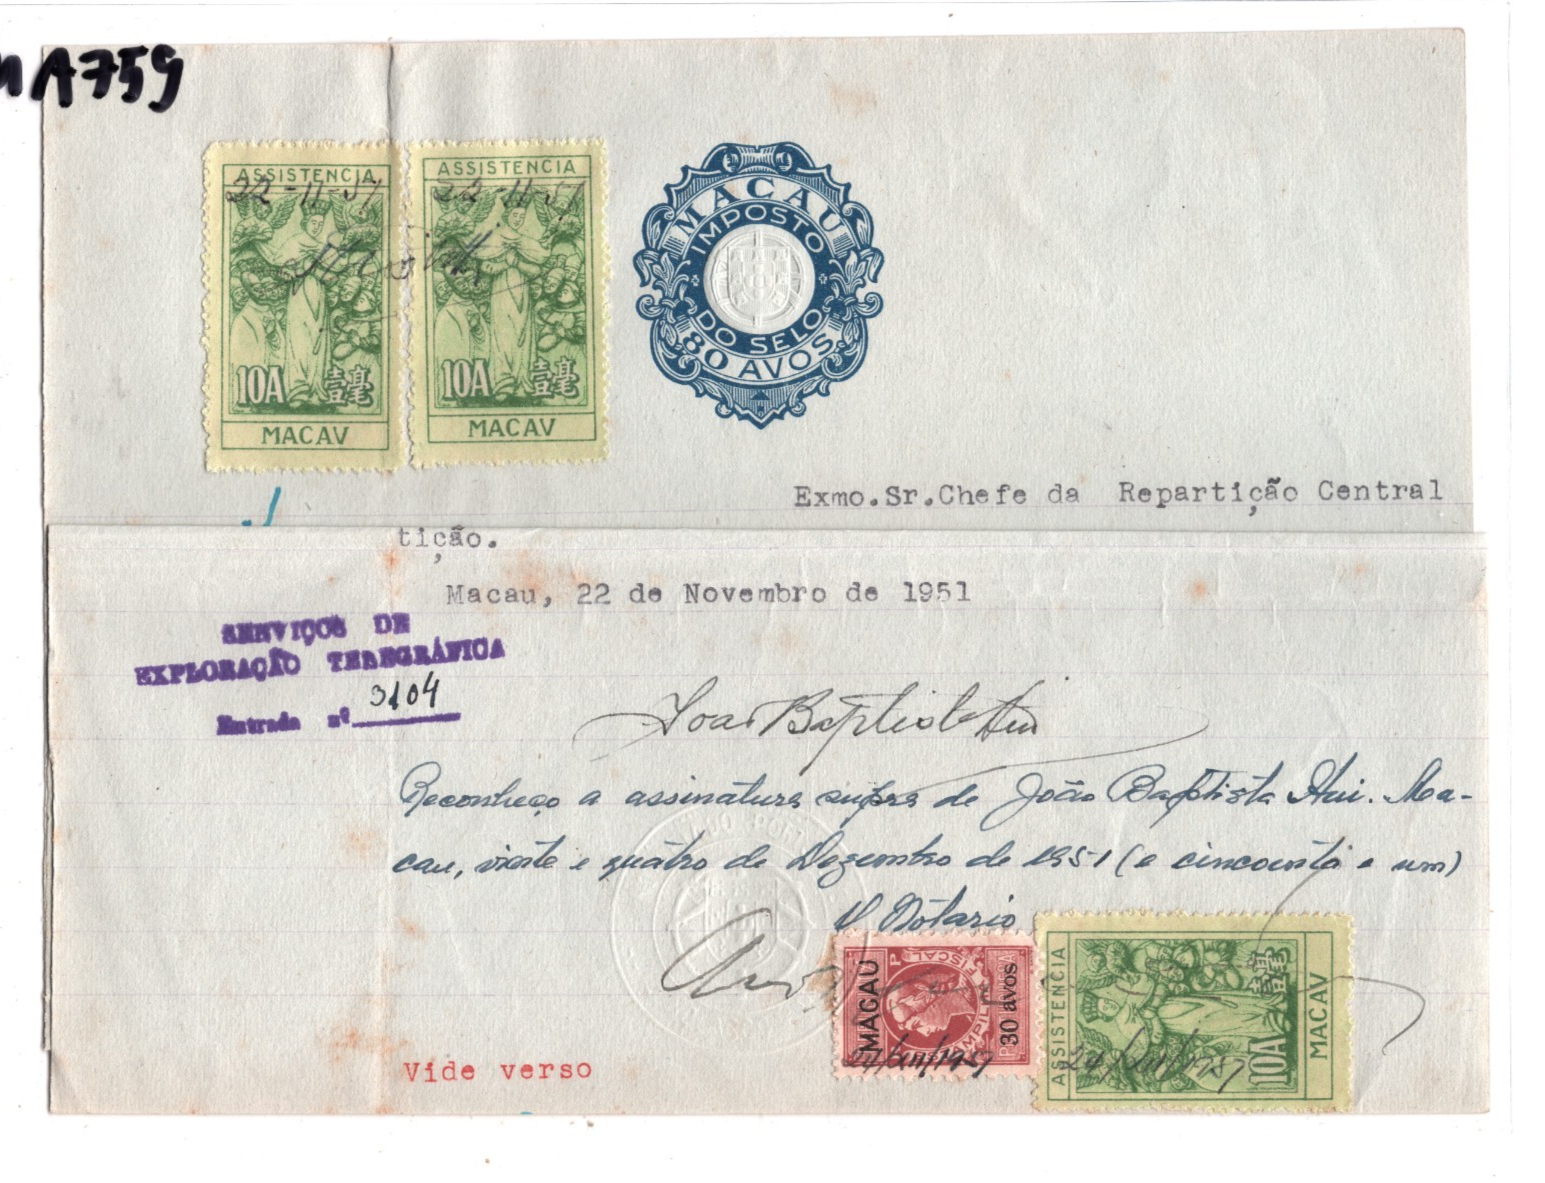 MA759
ASSISTENCIA
22-11-51
10A 壹毫
MACAV
ASSISTENCIA
22-11-51
10A 壹毫
MACAV
MACAU
IMPOSTO
DO SELO
80 AVOS
Exmo.Sr.Chefe da Repartição Central
tição.
Macau, 22 de Novembro de 1951
SERVIÇOS DE
EXPLORAÇÃO TELEGRÁFICA
Entrada nº 3104
João Baptista Hui
Reconheço a assinatura supra de João Baptista Hui. Ma-
cau, vinte e quatro de Dezembro de 1951 (e cincoenta e um)
O Notario
MACAU
FISCAL
30 avos
24/XII/1951
ASSISTENCIA
24/XII/1951
10A 壹毫
MACAV
Vide verso